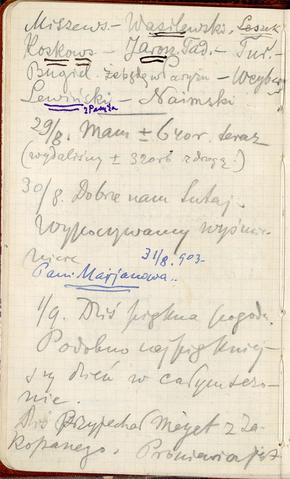 Miszews. - Wasilewski, Leszek
Koskows - Jarosz Tad. - Tur. -
Bugiel - Weyber
Lewiński z Paryża - Naimski
29/8. Mam ± 640r. teraz
(wydaliśmy ± 320rb z drogą.)
30/8. Dobrze nam tutaj.
Wypoczywamy wyśmie-
nicie 31/8. 903.
Pani Marjanowa..
1/9. Dziś piękna pogoda.
Podobno najpiękniej-
szy dzień w całym sezo-
nie.
Dziś przyjechał Meyet z Za-
kopanego. jest